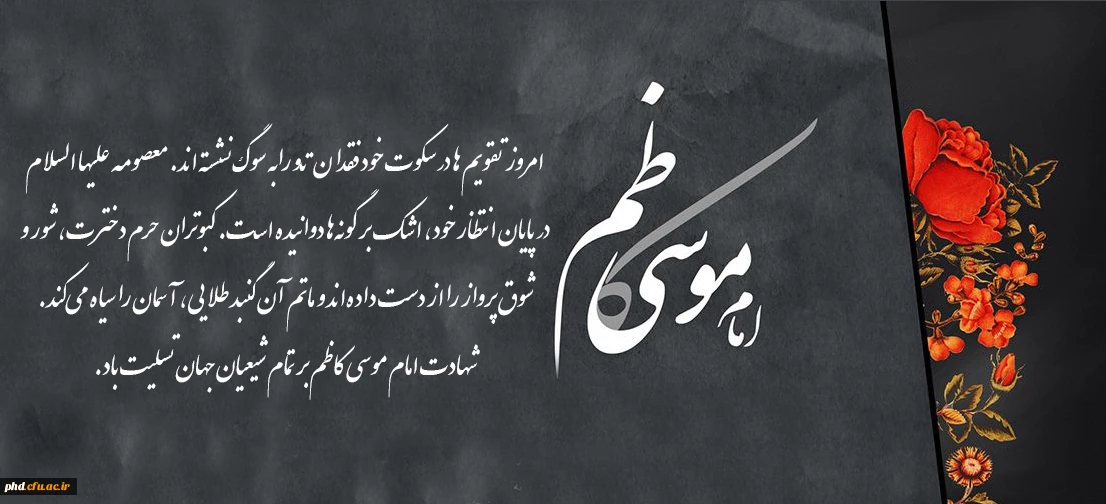 امام موسی کاظم
امروز تقویم ها در سکوت خود فقدان تو را به سوگ نشسته اند. معصومه علیها السلام
در پایان انتظار خود، اشک بر گونه ها دوانیده است. کبوتران حرم دخترت، شور و
شوق پرواز را از دست داده اند و ماتم آن گنبد طلایی، آسمان را سیاه می کند.
شهادت امام موسی کاظم بر تمام شیعیان جهان تسلیت باد.
phd.cfu.ac.ir